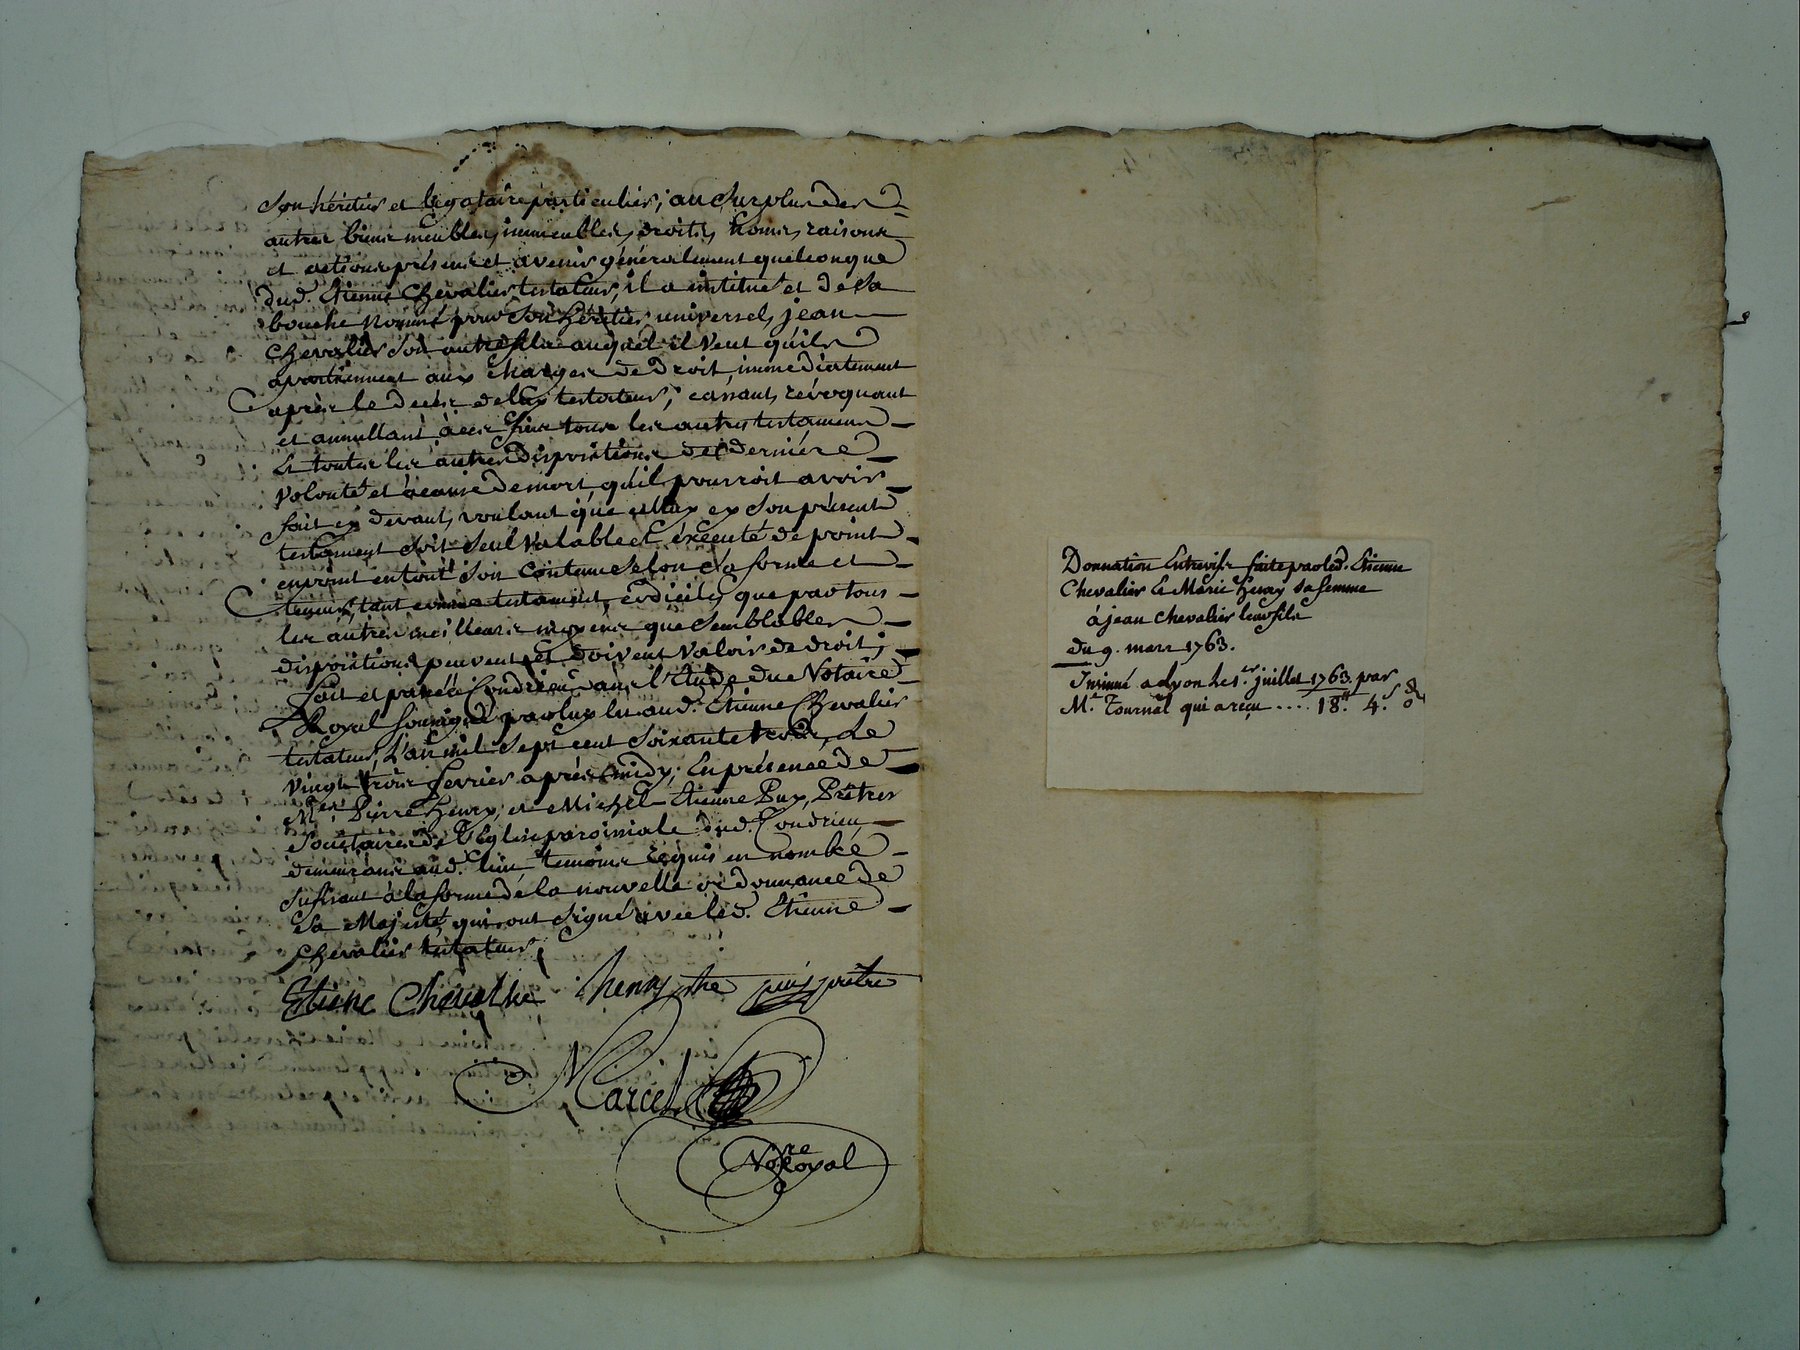 son héritier et légataire particulier; au surplus des
autres biens meubles, immeubles, droits, noms, raisons
et actions présens et avenir généralement quelconque
dud. Etienne Chevalier testateur, il a institué et de sa
bouche nommé pour son héritier universel, jean
Chevalier son autre fils auquel il veut qu'ils
apartiennent aux charges de droit immédiatement
après le décès de luy testateur; cassant, révoquant
et annullant à ces fins tous les autres testamens
et toutes les autres dispositions de derniére
volonté et à cause de mort qu'il pourroit avoir
fait cy devant, voulant que celluy cy son présent
testament soit seul valable et éxécuté de point
en point en tout son contenu selon sa forme et
teneur, tant comme testament, codicile, que par tous
les autres meilleurs moyens que semblables
dispositions peuvent et doivent valoir de droit;
fait et passé à Condrieu dans l'Etude du Notaire
Royal soussigné par luy lu aud. Etienne Chevalier
testateur, L'an mil sept cent soixante trois, Le
vingt trois fevrier après midy; En présence de
Mes. Pierre henry, et Michel Etienne Puy, Prêtres
Sociétaires de l'Eglise paroissiale dud. Condrieu,
demeurans aud. lieu temoins requis en nombre
sufisant à la forme de la nouvelle ordonnance de
Sa Majesté, qui ont signé avec led. Etienne
Chevalier testateur,
Etiene Chevallie henry ptre puy prêtre
Marcel
Nore Royal
Donnation Entrevifs faite par led. Etienne
Chevalier & Marie henry sa femme
à jean chevalier leur fils
du 9. mars 1763.
Insinué a Lyon le 1.er juillet 1763. par
Mr. Tournal qui a reçu .... 18.tt 4.s 8.d